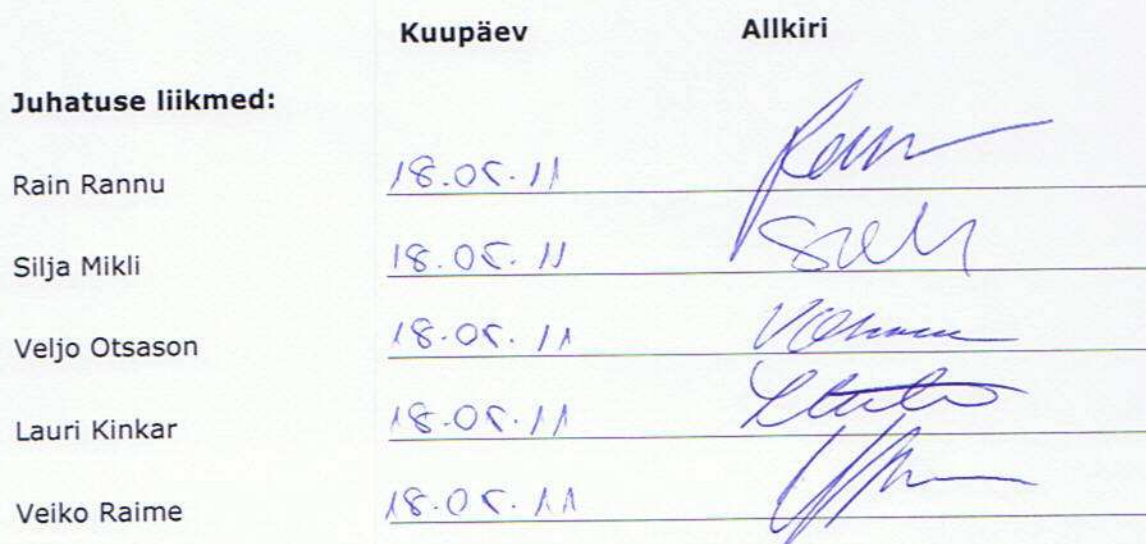 Kuupäev Allkiri
Juhatuse liikmed:
Rain Rannu 18.05.11
Silja Mikli 18.05.11
Veljo Otsason 18.05.11
Lauri Kinkar 18.05.11
Veiko Raime 18.05.11